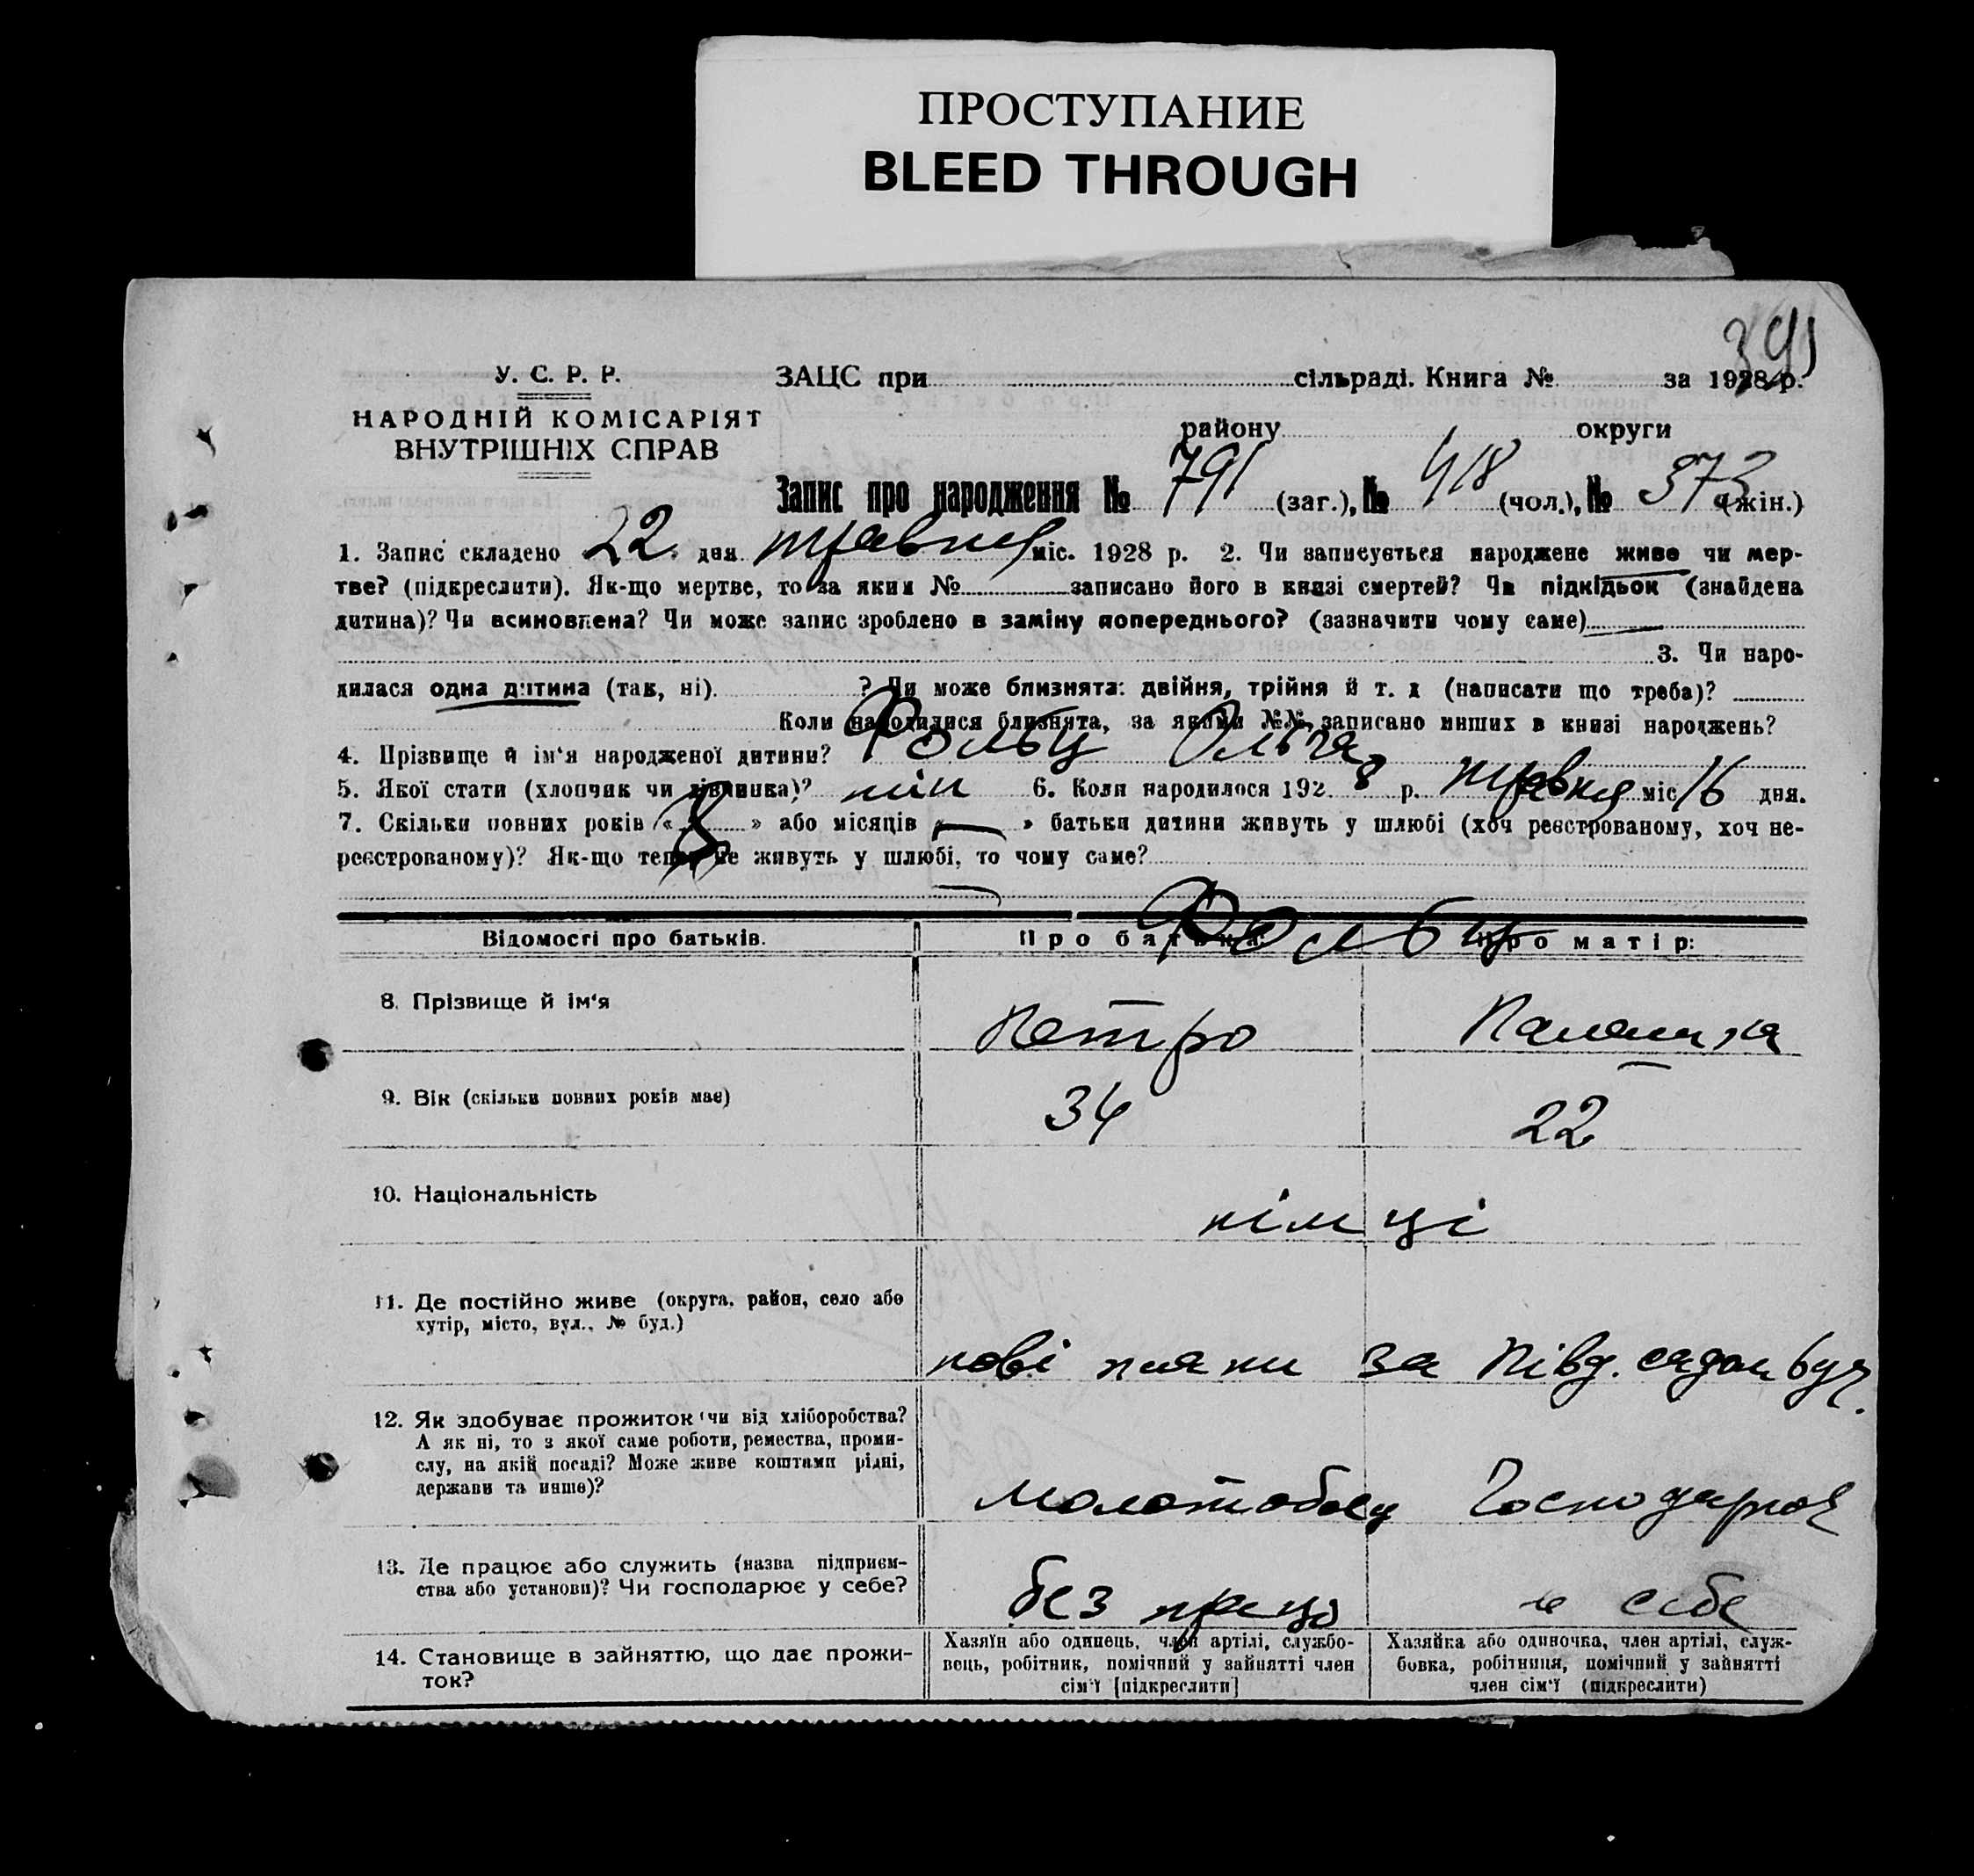 ПРОСТУПАНИЕ
BLEED THROUGH
391
У. С. Р. Р.
НАРОДНІЙ КОМІСАРІЯТ
ВНУТРІШНІХ СПРАВ
ЗАЦС при сільраді. Книга № за 1928 р.
району округи
Запис про народження № 791 (заг.), № 418 (чол.), № 373 (жін.)
1. Запис складено 22 дня травня міс. 1928 р. 2. Чи записується народжене живе чи мер-
тве? (підкреслити). Як-що мертве, то за яким № записано його в книзі смертей? Чи підкідьок (знайдена
дитина)? Чи всиновлена? Чи може запис зроблено в заміну попереднього? (зазначити чому саме)
3. Чи наро-
дилася одна дитина (так, ні). ? Чи може близнята: двійня, трійня й т. д (написати що треба)?
Коли народилися близнята, за якими №№ записано инших в книзі народжень?
4. Прізвище й ім'я народженої дитини? Фольц Ольга
5. Якої стати (хлопчик чи дівчинка)? жін 6. Коли народилося 1928 р. травня міс 16 дня.
7. Скільки повних років « 8 » або місяців « — » батьки дитини живуть у шлюбі (хоч реєстрованому, хоч не-
реєстрованому)? Як-що тепер не живуть у шлюбі, то чому саме?
Відомості про батьків. Про батька: Про матір:
Фольц
8. Прізвище й ім'я Петро
9. Вік (скільки повних років має) 34 22
10. Національність німці
11. Де постійно живе (округа, район, село або
хутір, місто, вул., № буд.)
нові пляни за Півд. садом
12. Як здобуває прожиток чи від хліборобства?
А як ні, то з якої саме роботи, ремества, проми-
слу, на якій посаді? Може живе коштами рідні,
держави та инше)?
молотобоец Господарює
13. Де працює або служить (назва підприєм-
ства або установи)? Чи господарює у себе?
без праці в себе
14. Становище в зайняттю, що дає прожи-
ток?
Хазяїн або одинець, член артілі, службо-
вець, робітник, помічний у зайнятті член
сім'ї [підкреслити]
Хазяйка або одиночка, член артілі, служ-
бовка, робітниця, помічний у зайнятті
член сім'ї (підкреслити)